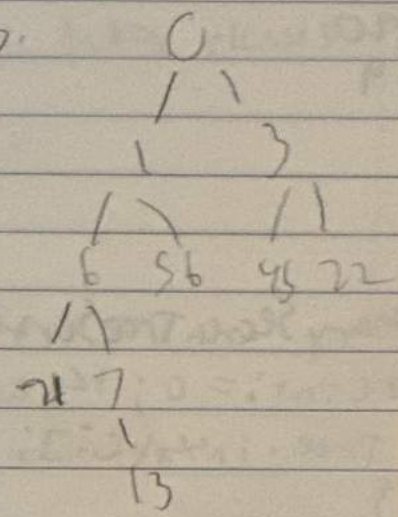 0
1 3
6 56 45 22
21 7
13